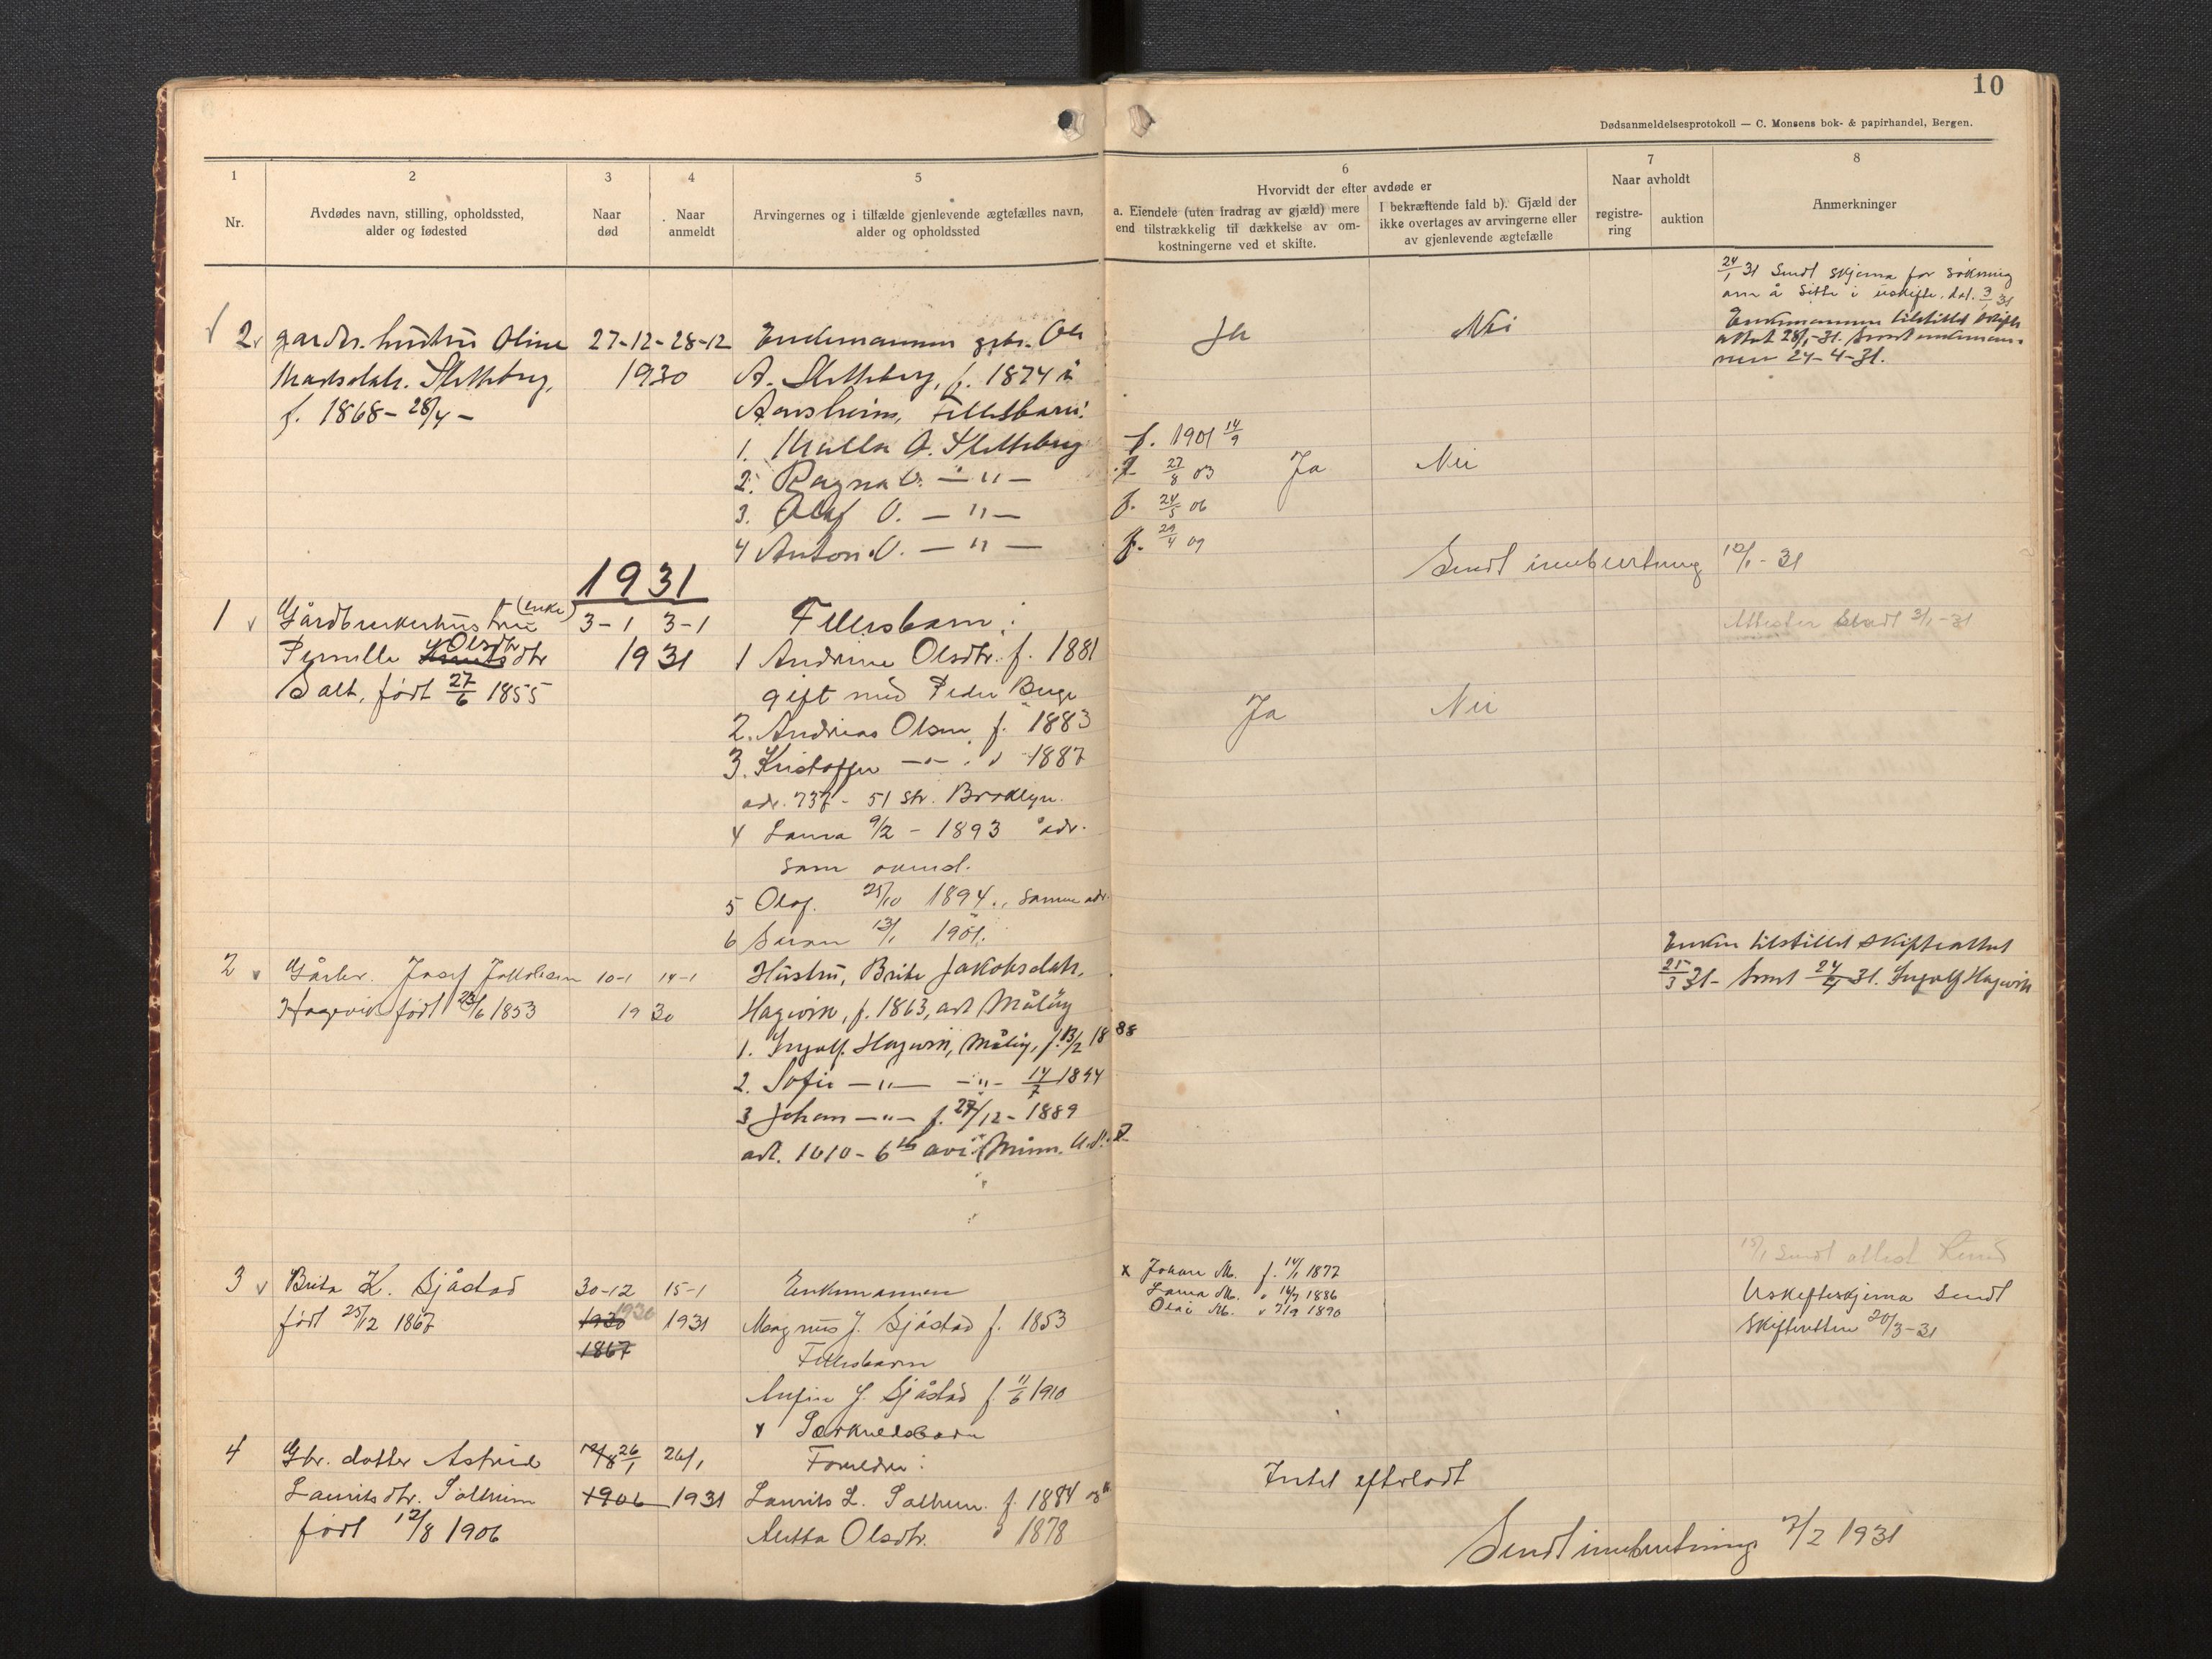 10
Dødsanmeldelsesprotokoll — C. Monsens bok- & papirhandel, Bergen.
1 2 3 4 5
Nr.
Avdødes navn, stilling, opholdssted,
alder og fødested
Naar
død
Naar
anmeldt
Arvingernes og i tilfælde gjenlevende ægtefælles navn,
alder og opholdssted
6
Hvorvidt der efter avdøde er
a. Eiendele (uten fradrag av gjæld) mere
end tilstrækkelig til dækkelse av om-
kostningerne ved et skifte.
I bekræftende fald b). Gjæld der
ikke overtages av arvingerne eller
av gjenlevende ægtefælle
7
Naar avholdt
registre-
ring
auktion
8
Anmerkninger
2. gardbr. hustru Oline 27-12-28-12 Enkemannen gbr. Ole
Madsdatr. Sletteberg, 1930 A. Sletteberg, f. 1874 i
f. 1868 - 28/4 -
Fellesbarn:
1. Malla O. Sletteberg f. 1901 14/9
2. Ragna O. — " — f. 27/8 03 Ja Nei
3. Olaf O. — " — f. 24/5 06
4 Anton O. — " — f. 29/4 09
Ja Nei
24/1 31 Sendt skjema for søkning
om å sitte i uskifte. dat. 3/1 31
Enkemannen tilstillet skifte
attest 28/1-31. Sendt enkeman-
nen 24-4-31.
Sendt innberetning 10/1 - 31
1931
1 Gårdbrukerhustru (enke) 3-1 3-1 Fellesbarn:
Pernille Knutsdtr Olsdtr 1931 1 Andrine Olsdtr. f. 1881
Salt, født 27/6 1855 gift med Peder Berge
2. Andreas Olsen f. 1883
3. Kristoffer — " — " 1887
adr. 737 - 51 Str. Broklyn.
4 Laura 9/2 - 1893 adr.
som ovenf.
5 Olaf. 25/10 1894., samme adr.
6 Søren 13/1 1901.
Attester Sendt 3/1-31
Ja Nei
2 Gårbr. Josef Jakobsen 10-1 14-1 Hustru, Brite Jakobsdatr.
Hagevik født 23/6 1853 1930 Hagevik, f. 1863, adr Måløy
1. Ingolf Hagevik, Måløy, f. 13/2 1888
2. Sofie — " — — " — 14/7 1894
3 Johan — " — f. 27/12 - 1889
adr. 1010 - 6th ave Minn. U.S.
Enken tilstillet skifteattest
25/3 31 - Sendt 24/4 31. Ingolf Hagevik
3 Brita K. Sjåstad 30-12 15-1 Enkemannen
født 25/12 1867 1930 1930 1931 Magnus J. Sjåstad f. 1853
1867 Fellesbarn
Anfin J. Sjåstad f. 11/6 1910
x Særkuldsbarn
x Johan M. f. 14/1 1877
Laura M. " 16/7 1886
Olai M. " 7/9 1890
15/1 Sendt attest Lensm
Uskifteskjema Sendt
Skifteretten 20/3-31
4 Gbr. datter Astrid 12/8 26/1 26/1 Foreldre:
Lauritsdtr. Solheim 1906 1931 Laurits L. Solheim. f. 1884 og
født 12/8 1906 Anitta Olsdtr. " 1878
Intet efterladt
Sendt innberetning 7/2 1931